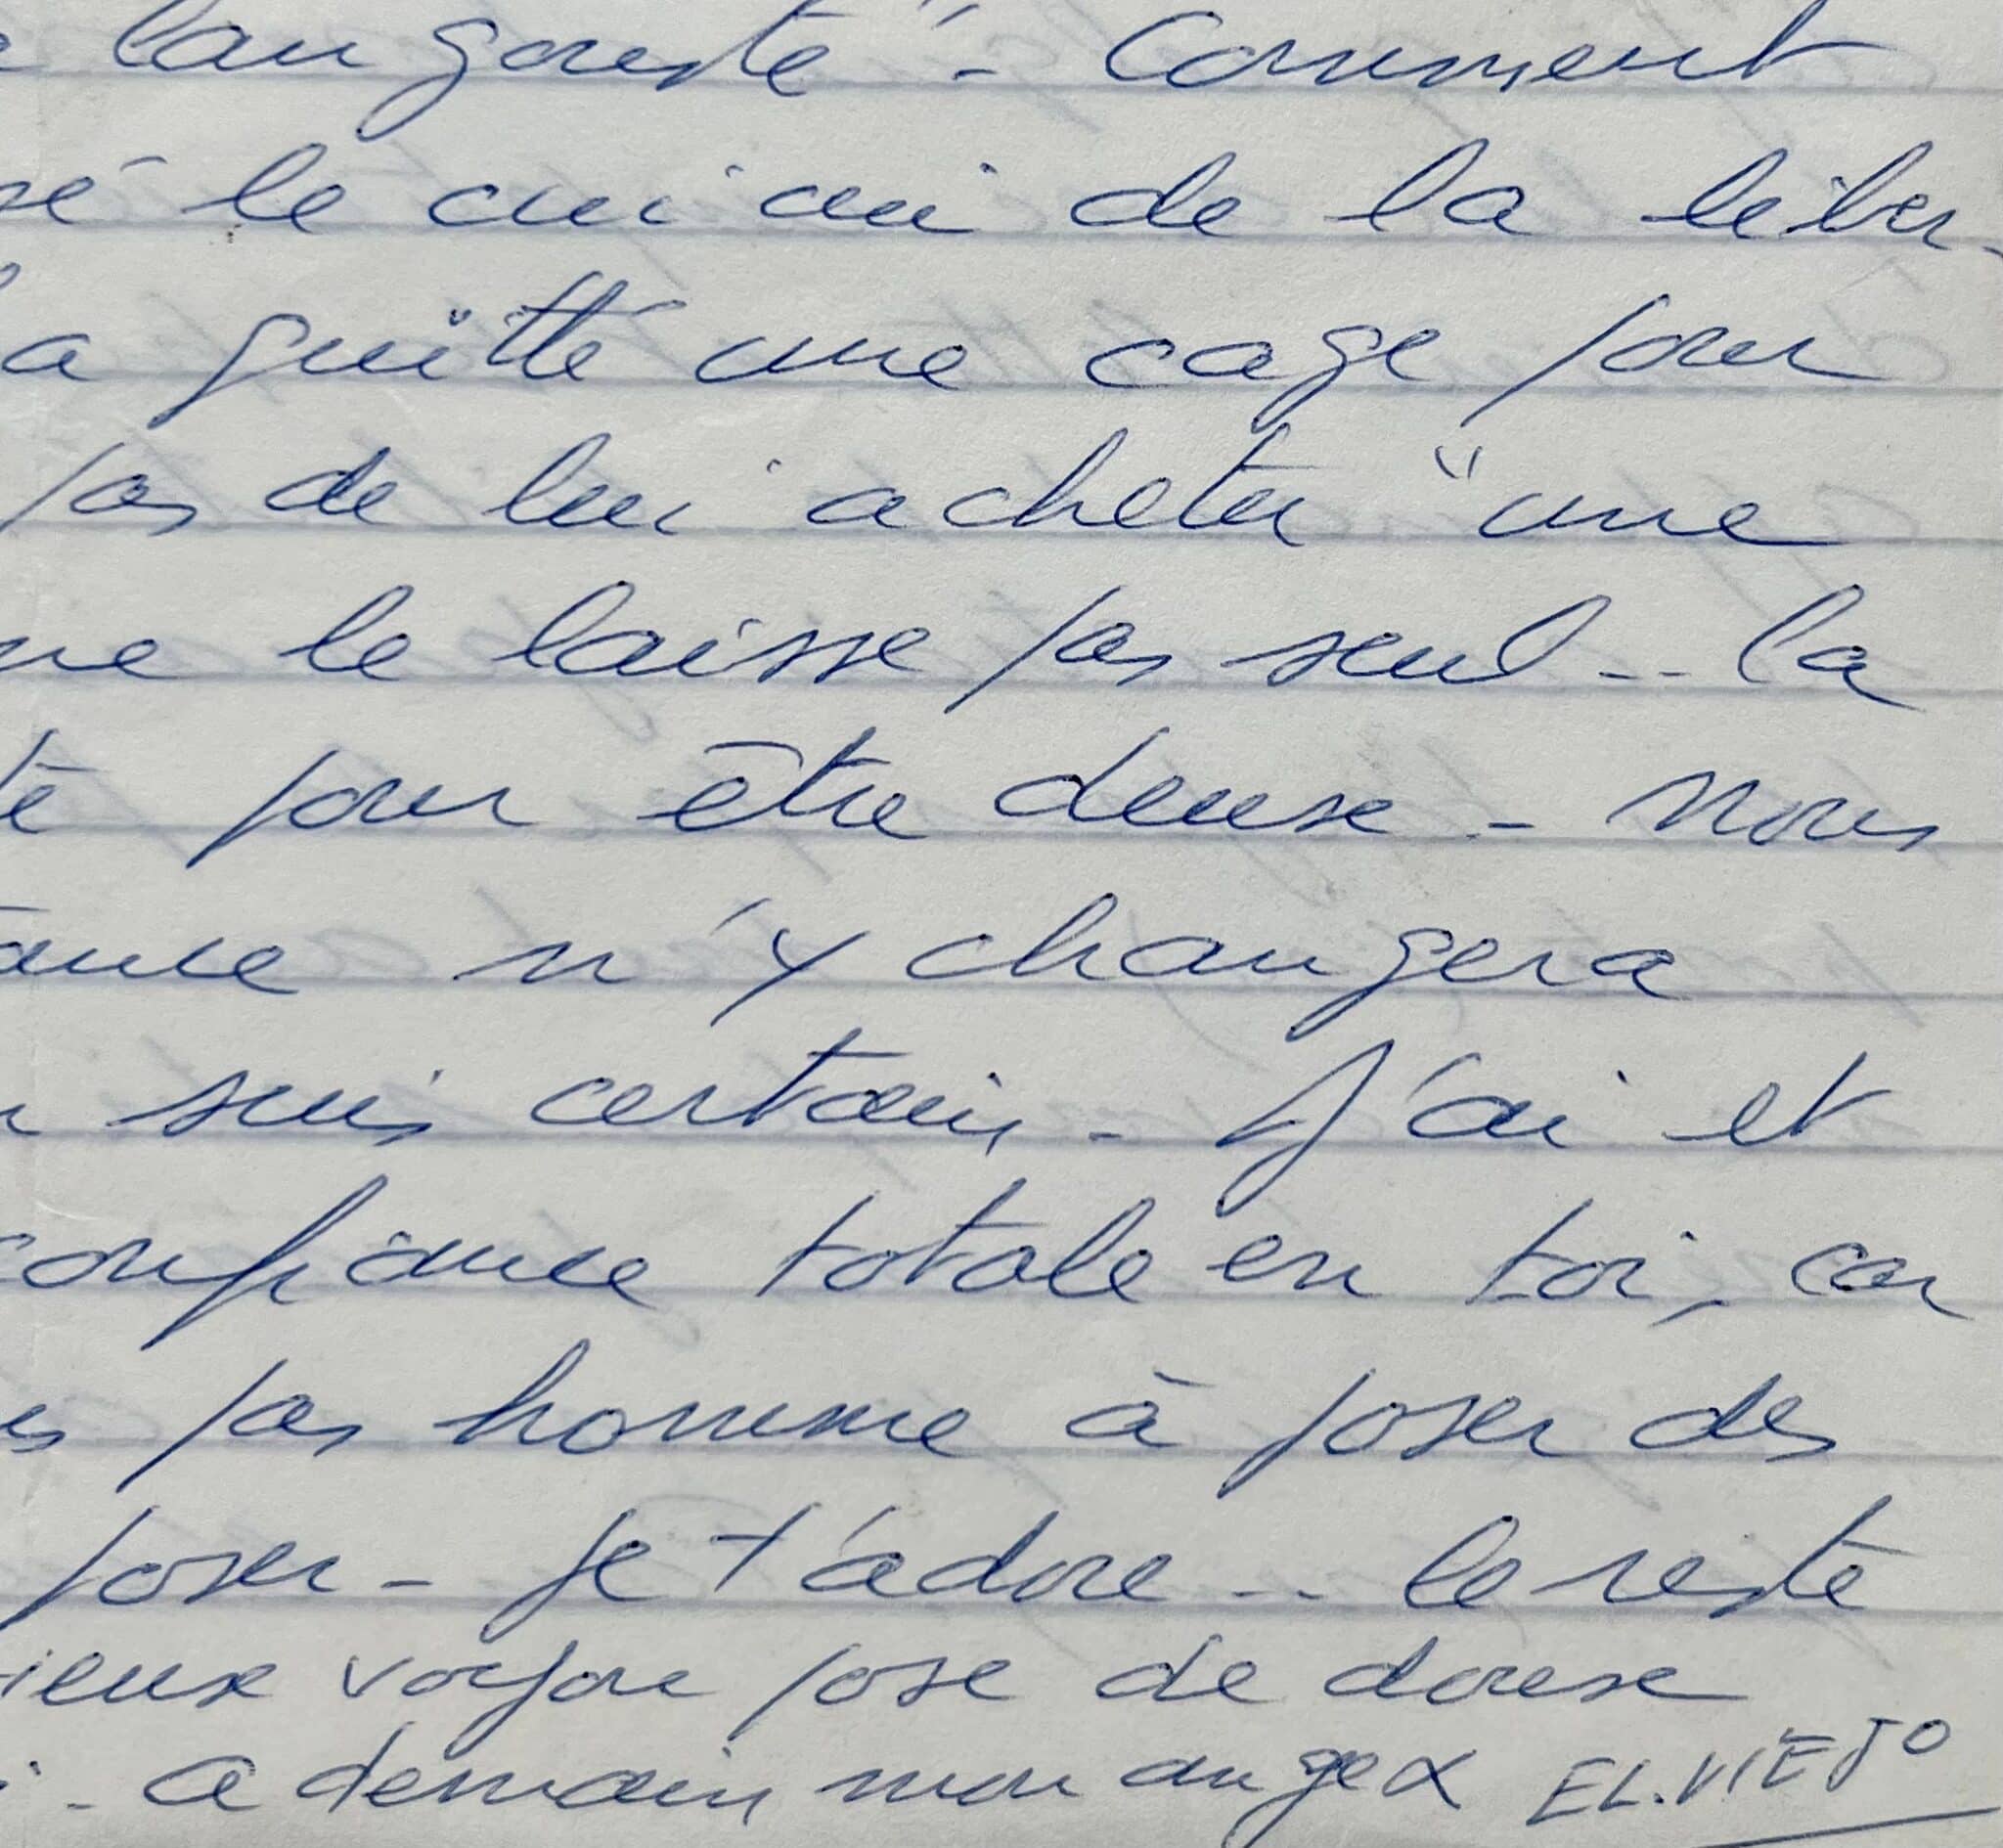 langouste" - Comment
sé le cui cui de la liber-
a quitté une cage pour
pas de lui acheter "une
ne le laisse pas seul .. la
té pour être deux - nous
ance n'y changera
suis certain - J'ai et
confiance totale en toi, car
es pas homme à poser des
poser - je t'adore .. le reste
ieux voyou pose de doux
- a demain mon ange EL.VIEJO